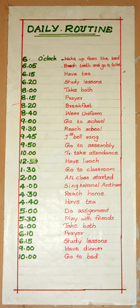 DAILY ROUTINE
6. O'clock - Wake up from the bed
6.05 Brush teeth and go to toilet
6.15 Have tea
6.20 Study lessons
8.00 Take bath
8.15 Prayer
8.20 Breakfast
8.40 Wear Uniform
9.00 Go to school
9.30 Reach school
9.45 1st bell rang
9.50 Go to assembly
10.00 To take attendance
12.50 Have lunch
1.30 Go to classroom
2.00 All class started
4.00 Sing National Anthem
4.30 Reach home
4.40 Have tea
5.00 Do assignment
5.30 Play with friends
6.00 Take bath
6.10 Prayer
6.15 Study lessons
9.00 Have dinner
10.00 Go to bed